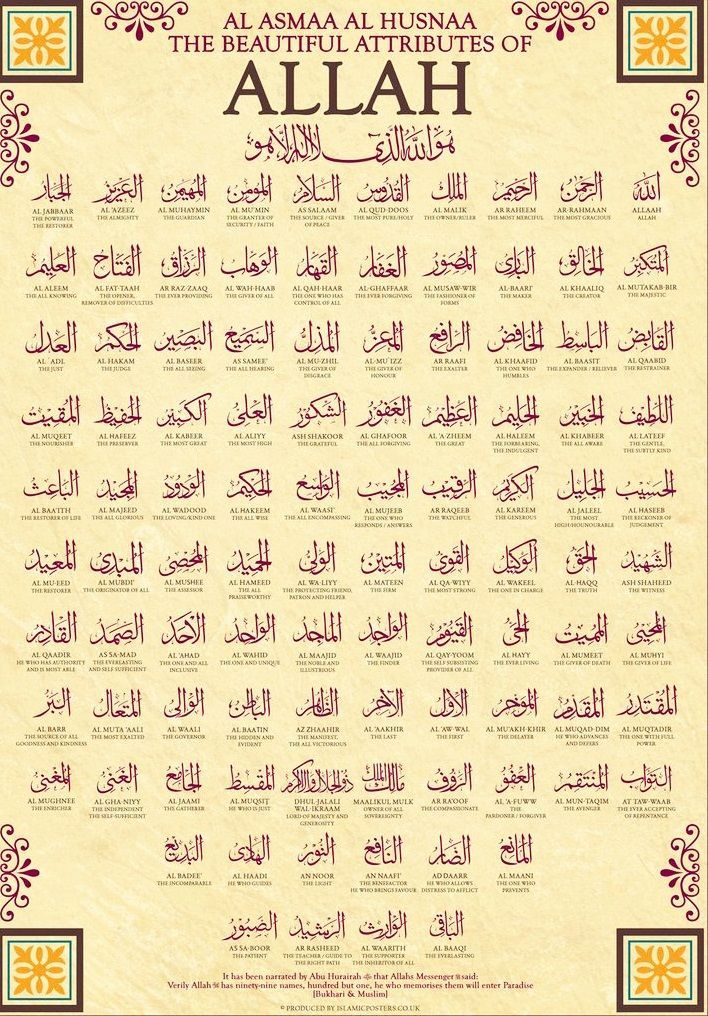 AL ASMAA AL HUSNAA
THE BEAUTIFUL ATTRIBUTES OF
ALLAH
هو الله الذي لا إله إلا هو
الله
ALLAAH
ALLAH
الرحمن
AR-RAHMAAN
THE MOST GRACIOUS
الرحيم
AR RAHEEM
THE MOST MERCIFUL
الملك
AL MALIK
THE OWNER/RULER
القدوس
AL QUD-DOOS
THE MOST PURE/HOLY
السلام
AS SALAAM
THE SOURCE / GIVER
OF PEACE
المؤمن
AL MU'MIN
THE GRANTER OF
SECURITY / FAITH
المهيمن
AL MUHAYMIN
THE GUARDIAN
العزيز
AL 'AZEEZ
THE ALMIGHTY
الجبار
AL JABBAAR
THE POWERFUL
THE RESTORER
المتكبر
AL MUTAKAB-BIR
THE MAJESTIC
الخالق
AL KHAALIQ
THE CREATOR
البارئ
AL-BAARI'
THE MAKER
المصور
AL MUSAW-WIR
THE FASHIONER OF
FORMS
الغفار
AL-GHAFFAAR
THE EVER FORGIVING
القهار
AL-QAH-HAAR
THE ONE WHO HAS
CONTROL OF ALL
الوهاب
AL WAH-HAAB
THE GIVER OF ALL
الرزاق
AR RAZ-ZAAQ
THE EVER PROVIDING
الفتاح
AL FAT-TAAH
THE OPENER,
REMOVER OF DIFFICULTIES
العليم
AL ALEEM
THE ALL KNOWING
القابض
AL QAABID
THE RESTRAINER
الباسط
AL BAASIT
THE EXPANDER / RELIEVER
الخافض
AL KHAAFID
THE ONE WHO
HUMBLES
الرافع
AR RAAFI
THE EXALTER
المعز
AL-MU'IZZ
THE GIVER OF
HONOUR
المذل
AL MU-ZHIL
THE GIVER OF
DISGRACE
السميع
AS SAMEE'
THE ALL HEARING
البصير
AL BASEER
THE ALL SEEING
الحكم
AL HAKAM
THE JUDGE
العدل
AL 'ADL
THE JUST
اللطيف
AL-LATEEF
THE GENTLE,
THE SUBTLY KIND
الخبير
AL KHABEER
THE ALL AWARE
الحليم
AL HALEEM
THE FORBEARING,
THE INDULGENT
العظيم
AL 'A-ZHEEM
THE GREAT
الغفور
AL GHAFOOR
THE ALL FORGIVING
الشكور
ASH SHAKOOR
THE GRATEFUL
العلي
AL ALIYY
THE MOST HIGH
الكبير
AL KABEER
THE MOST GREAT
الحفيظ
AL HAFEEZ
THE PRESERVER
المقيت
AL MUQEET
THE NOURISHER
الحسيب
AL HASEEB
THE RECKONER OF
JUDGEMENT
الجليل
AL JALEEL
THE MOST
HIGH/HOUNOURABLE
الكريم
AL KAREEM
THE GENEROUS
الرقيب
AR RAQEEB
THE WATCHFUL
المجيب
AL MUJEEB
THE ONE WHO
RESPONDS / ANSWERS
الواسع
AL WAASI'
THE ALL ENCOMPASSING
الحكيم
AL HAKEEM
THE ALL WISE
الودود
AL WADOOD
THE LOVING/KIND ONE
المجيد
AL MAJEED
THE ALL GLORIOUS
الباعث
AL BAA'ITH
THE RESTORER OF LIFE
الشهيد
ASH SHAHEED
THE WITNESS
الحق
AL-HAQQ
THE TRUTH
الوكيل
AL WAKEEL
THE ONE IN CHARGE
القوي
AL QA-WIYY
THE MOST STRONG
المتين
AL MATEEN
THE FIRM
الولي
AL WA-LIYY
THE PROTECTING FRIEND,
PATRON AND HELPER
الحميد
AL HAMEED
THE ALL
PRAISEWORTHY
المحصي
AL MUSHEE
THE ASSESSOR
المبدئ
AL MUBDI'
THE ORIGINATOR OF ALL
المعيد
AL MU-EED
THE RESTORER
المحيي
AL MUHYI
THE GIVER OF LIFE
المميت
AL MUMEET
THE GIVER OF DEATH
الحي
AL HAYY
THE EVER LIVING
القيوم
AL QAY-YOOM
THE SELF SUBSISTING
PROVIDER OF ALL
الواجد
AL WAAJID
THE FINDER
الماجد
AL MAAJID
THE NOBLE AND
ILLUSTRIOUS
الواحد
AL WAHID
THE ONE AND UNIQUE
الأحد
AL 'AHAD
THE ONE AND ALL
INCLUSIVE
الصمد
AS SA-MAD
THE EVERLASTING
AND SELF SUFFICIENT
القادر
AL QAADIR
HE WHO HAS AUTHORITY
AND IS MOST ABLE
المقتدر
AL MUQTADIR
THE ONE WITH FULL
POWER
المقدم
AL MUQAD-DIM
HE WHO ADVANCES
AND DEFERS
المؤخر
AL MU'AKH-KHIR
THE DELAYER
الأول
AL 'AW-WAL
THE FIRST
الآخر
AL 'AAKHIR
THE LAST
الظاهر
AZ ZHAAHIR
THE MANIFEST,
THE ALL VICTORIOUS
الباطن
AL BAATIN
THE HIDDEN AND
EVIDENT
الوالي
AL WAALI
THE GOVERNOR
المتعال
AL MUTA 'AALI
THE MOST EXALTED
البر
AL BARR
THE SOURCE OF ALL
GOODNESS AND KINDNESS
التواب
AT TAW-WAAB
THE EVER ACCEPTING
OF REPENTANCE
المنتقم
AL MUN-TAQIM
THE AVENGER
العفو
AL 'A-FUWW
THE
PARDONER / FORGIVER
الرؤوف
AR RA'OOF
THE COMPASSIONATE
مالك الملك
MAALIKUL MULK
OWNER OF ALL
SOVEREIGNTY
ذو الجلال والإكرام
DHUL-JALALI
WAL-IKRAAM
LORD OF MAJESTY AND
GENEROSITY
المقسط
AL MUQSIT
HE WHO IS JUST
الجامع
AL JAAMI
THE GATHERER
الغني
AL GHA-NIYY
THE INDEPENDENT
THE SELF-SUFFICIENT
المغني
AL MUGHNEE
THE ENRICHER
المانع
AL MAANI
THE ONE WHO
PREVENTS
الضار
AD DAARR
HE WHO ALLOWS
DISTRESS TO AFFLICT
النافع
AN NAAFI'
THE BENEFACTOR
HE WHO BRINGS FAVOUR
النور
AN NOOR
THE LIGHT
الهادي
AL HAADI
HE WHO GUIDES
البديع
AL BADEE'
THE INCOMPARABLE
الباقي
AL BAAQI
THE EVERLASTING
الوارث
AL WAARITH
THE SUPPORTER
THE INHERITOR OF ALL
الرشيد
AR RASHEED
THE TEACHER / GUIDE TO
THE RIGHT PATH
الصبور
AS SA-BOOR
THE PATIENT
It has been narrated by Abu Hurairah that Allahs Messenger ﷺ said:
Verily Allah has ninety-nine names, hundred but one, he who memorises them will enter Paradise
[Bukhari & Muslim]
© PRODUCED BY ISLAMICPOSTERS.CO.UK